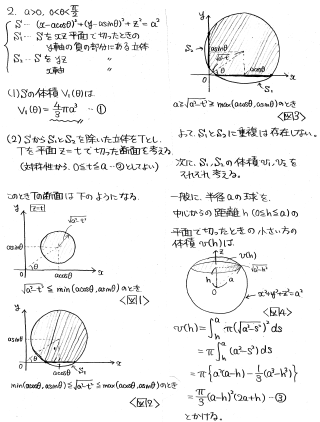 2. a>0, 0<θ<π/2
S … (x-acosθ)²+(y-asinθ)²+z²=a²
S₁ … Sをxz平面で切ったときの
y軸の負の部分にある立体
S₂ … Sを yz 〃
x軸 〃
(1) Sの体積V₁(θ)は
V₁(θ)=4/3 πa³ …①
(2) SからS₁とS₂を除いた立体をTとし、
Tを平面z=tで切った断面を考える
(対称性から、0≦t≦a …②としてよい)
このときTの断面は下のようになる.
y
z=t
√a²-t²
asinθ
θ
O
acosθ
x
√a²-t² ≦ min(acosθ, asinθ)のとき
<図1>
y
asinθ
θ
acosθ
S₁
x
min(acosθ, asinθ)≦√a²-t²≦max(acosθ, asinθ)のとき
<図2>
y
asinθ
S₂
θ
O
acosθ
x
S₁
a≧√a²-t²≧max(acosθ, asinθ)のとき
<図3>
よって、S₁とS₂に重複は存在しない.
次に、S₁、S₂の体積v₁, v₂を
それぞれ考える.
一般に、半径aの球を、
中心からの距離h (0≦h≦a)の
平面で切ったときの小さい方の
体積v(h)は
z
v(h)
a
√a²-h²
h
a
x²+y²+z²=a²
<図4>
v(h)=∫ₕᵃ π(√a²-s²)² ds
=π∫ₕᵃ (a²-s²)ds
=π{a²(a-h)-1/3(a³-h³)}
=π/3 (a-h)²(2a+h) …③
とかける.